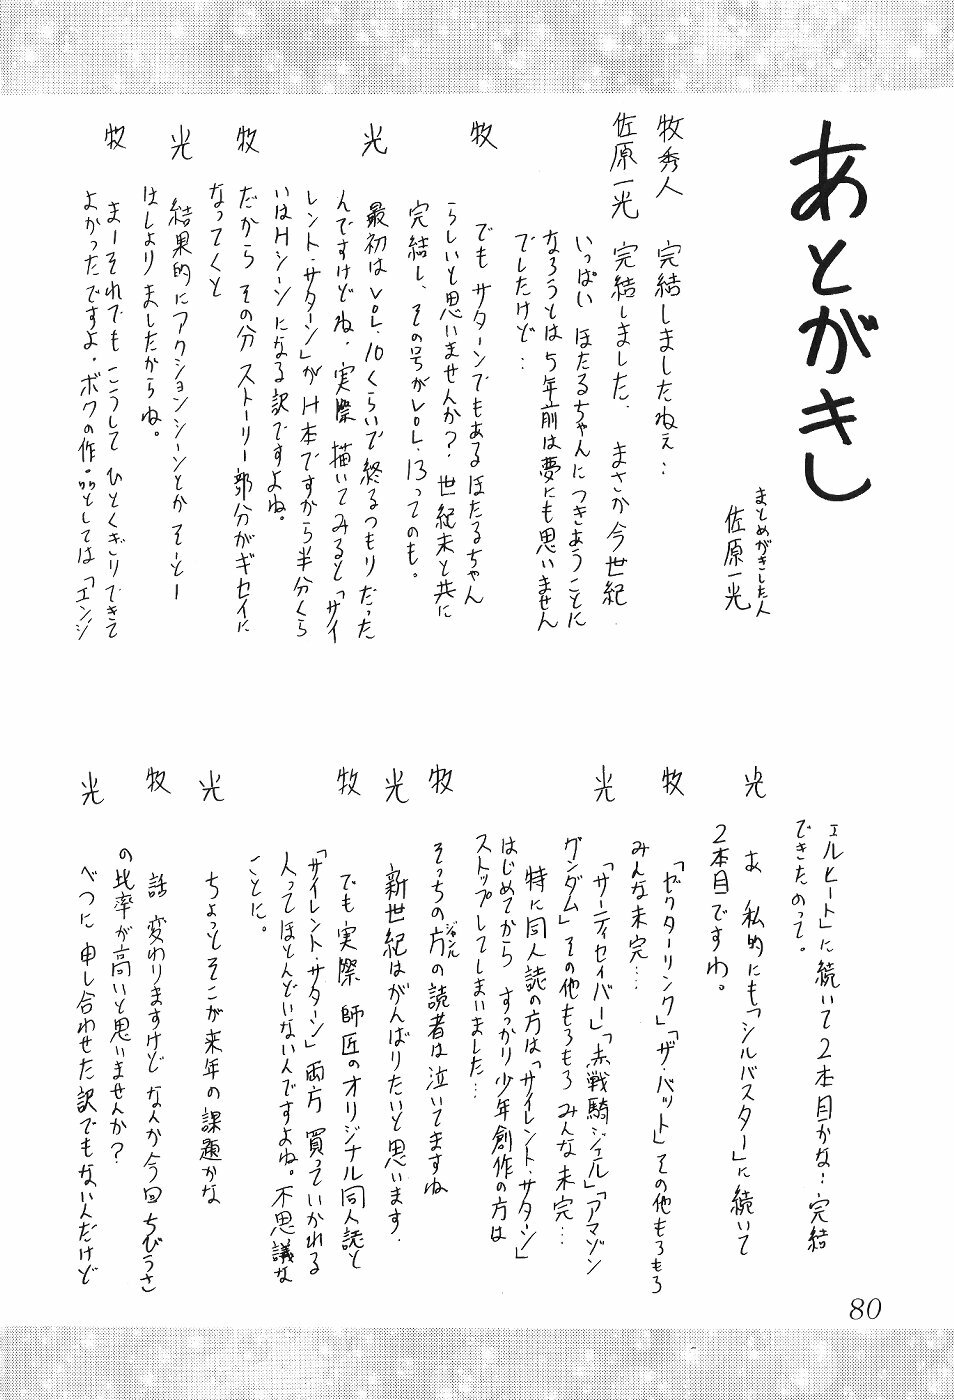 あとがきし
まとめがきした人
佐原一光
牧秀人　完結しましたねぇ…
佐原一光　完結しました、まさか今世紀
いっぱい ほたるちゃんにつきあうことに
なろうとは5年前は夢にも思いません
でしたけど…
牧　でもサターンでもあるほたるちゃん
らしいと思いませんか？世紀末と共に
完結し、その号がVOL.13ってのも。
光　最初はVOL.10くらいで終るつもりだった
んですけどね、実際描いてみると「サイ
レント・サターン」がH本ですから半分くら
いはHシーンになる訳ですよね。
牧　だからその分ストーリー部分がギセイに
なってくと
光　結果的にアクションシーンとかそーとー
はしょりましたからね。
牧　まーそれでもこうしてひとくぎりできて
よかったですよ、ボクの作品としては「エンジ
ェルヒート」に続いて2本目かな…完結
できたのって。
光　あ　私的にも「シルバスター」に続いて
2本目ですわ。
牧　「ゼクターリンク」「ザ・バット」その他もろもろ
みんな未完…
光　「サーティセイバー」「赤戦騎ジェル」「アマゾン
ゲンダム」その他もろもろみんな未完…
特に同人誌の方は「サイレント・サターン」
はじめてから すっかり少年創作の方は
ストップしてしまいました…
牧　そっちの方の読者は泣いてますね
ジャンル
光　新世紀はがんばりたいと思います.
牧　でも実際 師匠のオリジナル同人誌と
「サイレント・サターン」両方 買っていかれる
人ってほとんどいないんですよね。不思議な
ことに。
光　ちょっとそこが来年の課題かな
牧　話 変わりますけど なんか今回ちびうさ
の比率が高いと思いませんか？
光　べつに申し合わせた訳でもないんだけど
80